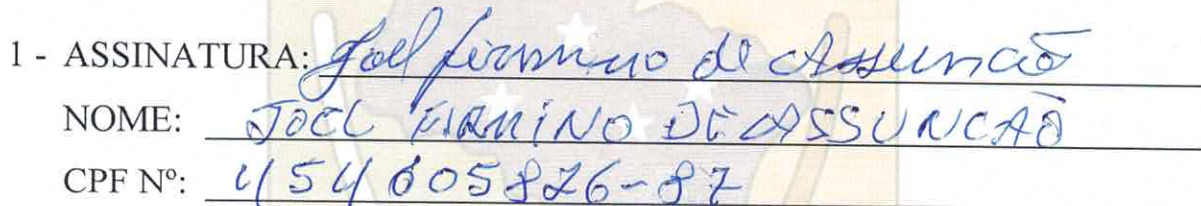 1 - ASSINATURA: Joel firmino de Assuncaõ
NOME: JOEL FIRMINO DE ASSUNCAÕ
CPF Nº: 454605826-87